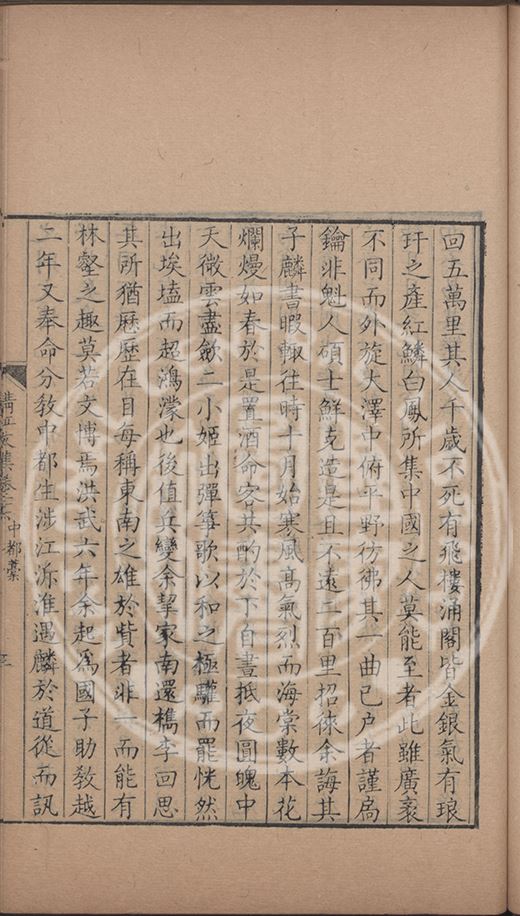 回五萬里其人千歲不死有飛樓涌閣皆金銀氣有琅
玕之產紅鱗白鳳所集中國之人莫能至者此雖廣袤
不同而外旋大澤中俯平野彷彿其一曲已户者謹扃
鑰非魁人碩士鮮克造是且不遠二百里招徠余誨其
子麟書暇輙往時十月始寒風高氣烈而海棠數本花
爛熳如春於是置酒命客共酌於下自晝抵夜圓魄中
天微雲盡歛二小姬出彈箏歌以和之極驩而罷恍然
出埃壒而超鴻濛也後值兵變余挈家南還檇李回思
其所猶歷歷在目每稱東南之雄於貲者非一而能有
林壑之趣莫若文博焉洪武六年余起爲國子助教越
二年又奉命分教中都生涉江泝淮遇麟於道從而訊
清江文集卷二十 中都藁